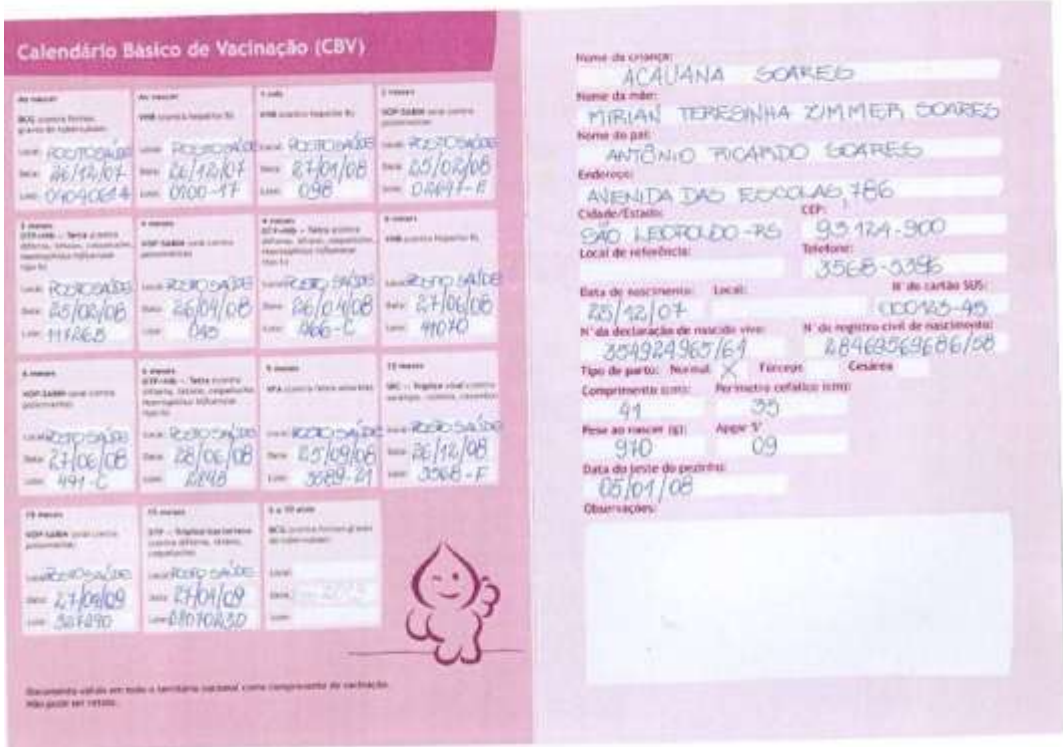 Calendário Básico de Vacinação (CBV)
Ao nascer
BCG (contra formas
graves de tuberculose)
Local: POSTO SAÚDE
Data: 26/12/07
Lote:
Ao nascer
VHB (contra hepatite B)
Local: POSTO SAÚDE
Data: 26/12/07
Lote: 0200-17
1 mês
VHB (contra hepatite B)
Local: POSTO SAÚDE
Data: 27/01/08
Lote: 098
2 meses
VOP-SABIN (oral contra
poliomielite)
Local: POSTO SAÚDE
Data: 25/02/08
Lote:
DTP+Hib - Tetra (contra
difteria, tétano, coqueluche,
Haemophilus influenzae
tipo b)
Local: POSTO SAÚDE
Data: 25/02/08
Lote:
4 meses
VOP-SABIN (oral contra
poliomielite)
Local: POSTO SAÚDE
Data: 26/04/08
Lote: 045
4 meses
DTP+Hib - Tetra (contra
difteria, tétano, coqueluche,
Haemophilus influenzae
tipo b)
Local: POSTO SAÚDE
Data: 26/04/08
Lote:
6 meses
VHB (contra hepatite B)
Local: POSTO SAÚDE
Data: 27/06/08
Lote: 41070
6 meses
VOP-SABIN (oral contra
poliomielite)
Local: POSTO SAÚDE
Data: 27/06/08
Lote: 491-C
6 meses
DTP+Hib - Tetra (contra
difteria, tétano, coqueluche,
Haemophilus influenzae
tipo b)
Local: POSTO SAÚDE
Data: 28/06/08
Lote:
9 meses
VFA (contra febre amarela)
Local: POSTO SAÚDE
Data: 25/09/08
Lote: 3689-21
12 meses
SRC - Tríplice viral (contra
sarampo, rubéola, caxumba)
Local: POSTO SAÚDE
Data: 26/12/08
Lote: 3568-F
15 meses
VOP-SABIN (oral contra
poliomielite)
Local: POSTO SAÚDE
Data: 27/04/09
Lote: 367890
15 meses
DTP - Tríplice bacteriana
(contra difteria, tétano,
coqueluche)
Local: POSTO SAÚDE
Data: 27/04/09
Lote:
6 a 10 anos
BCG (contra formas graves
de tuberculose)
Local:
Data:
Lote:
Documento válido em todo o território nacional como comprovante de vacinação.
Não pode ser retido.
Nome da criança:
ACAUANA SOARES
Nome da mãe:
MIRIAN TERESINHA ZIMMER SOARES
Nome do pai:
ANTÔNIO RICARDO SOARES
Endereço:
AVENIDA DAS ESCOLAS, 786
Cidade/Estado: CEP:
SÃO LEOPOLDO-RS 93124-900
Local de referência: Telefone:
3568-5396
Data de nascimento: Local: Nº do cartão SUS:
25/12/07 000123-45
Nº da declaração de nascido vivo: Nº do registro civil de nascimento:
354924965/64 28469569686/58
Tipo de parto: Normal X Fórceps Cesárea
Comprimento (cm): Perímetro cefálico (cm):
41 35
Peso ao nascer (g): Apgar 5'
970 09
Data do teste do pezinho:
05/01/08
Observações: